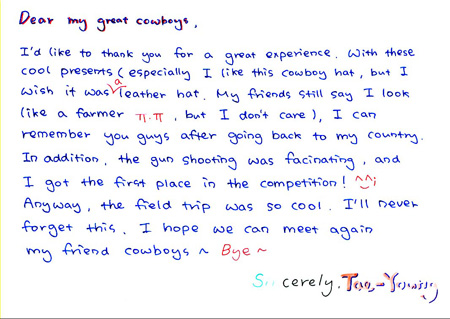 Dear my great cowboys,
I'd like to thank you for a great experience. With these
cool presents (especially I like this cowboy hat, but I
wish it was a leather hat. My friends still say I look
like a farmer ㅠ.ㅠ, but I don't care), I can
remember you guys after going back to my country.
In addition, the gun shooting was facinating, and
I got the first place in the competition! ^^;
Anyway, the field trip was so cool. I'll never
forget this. I hope we can meet again
my friend cowboys ~ Bye ~
Sincerely, Tae-Young